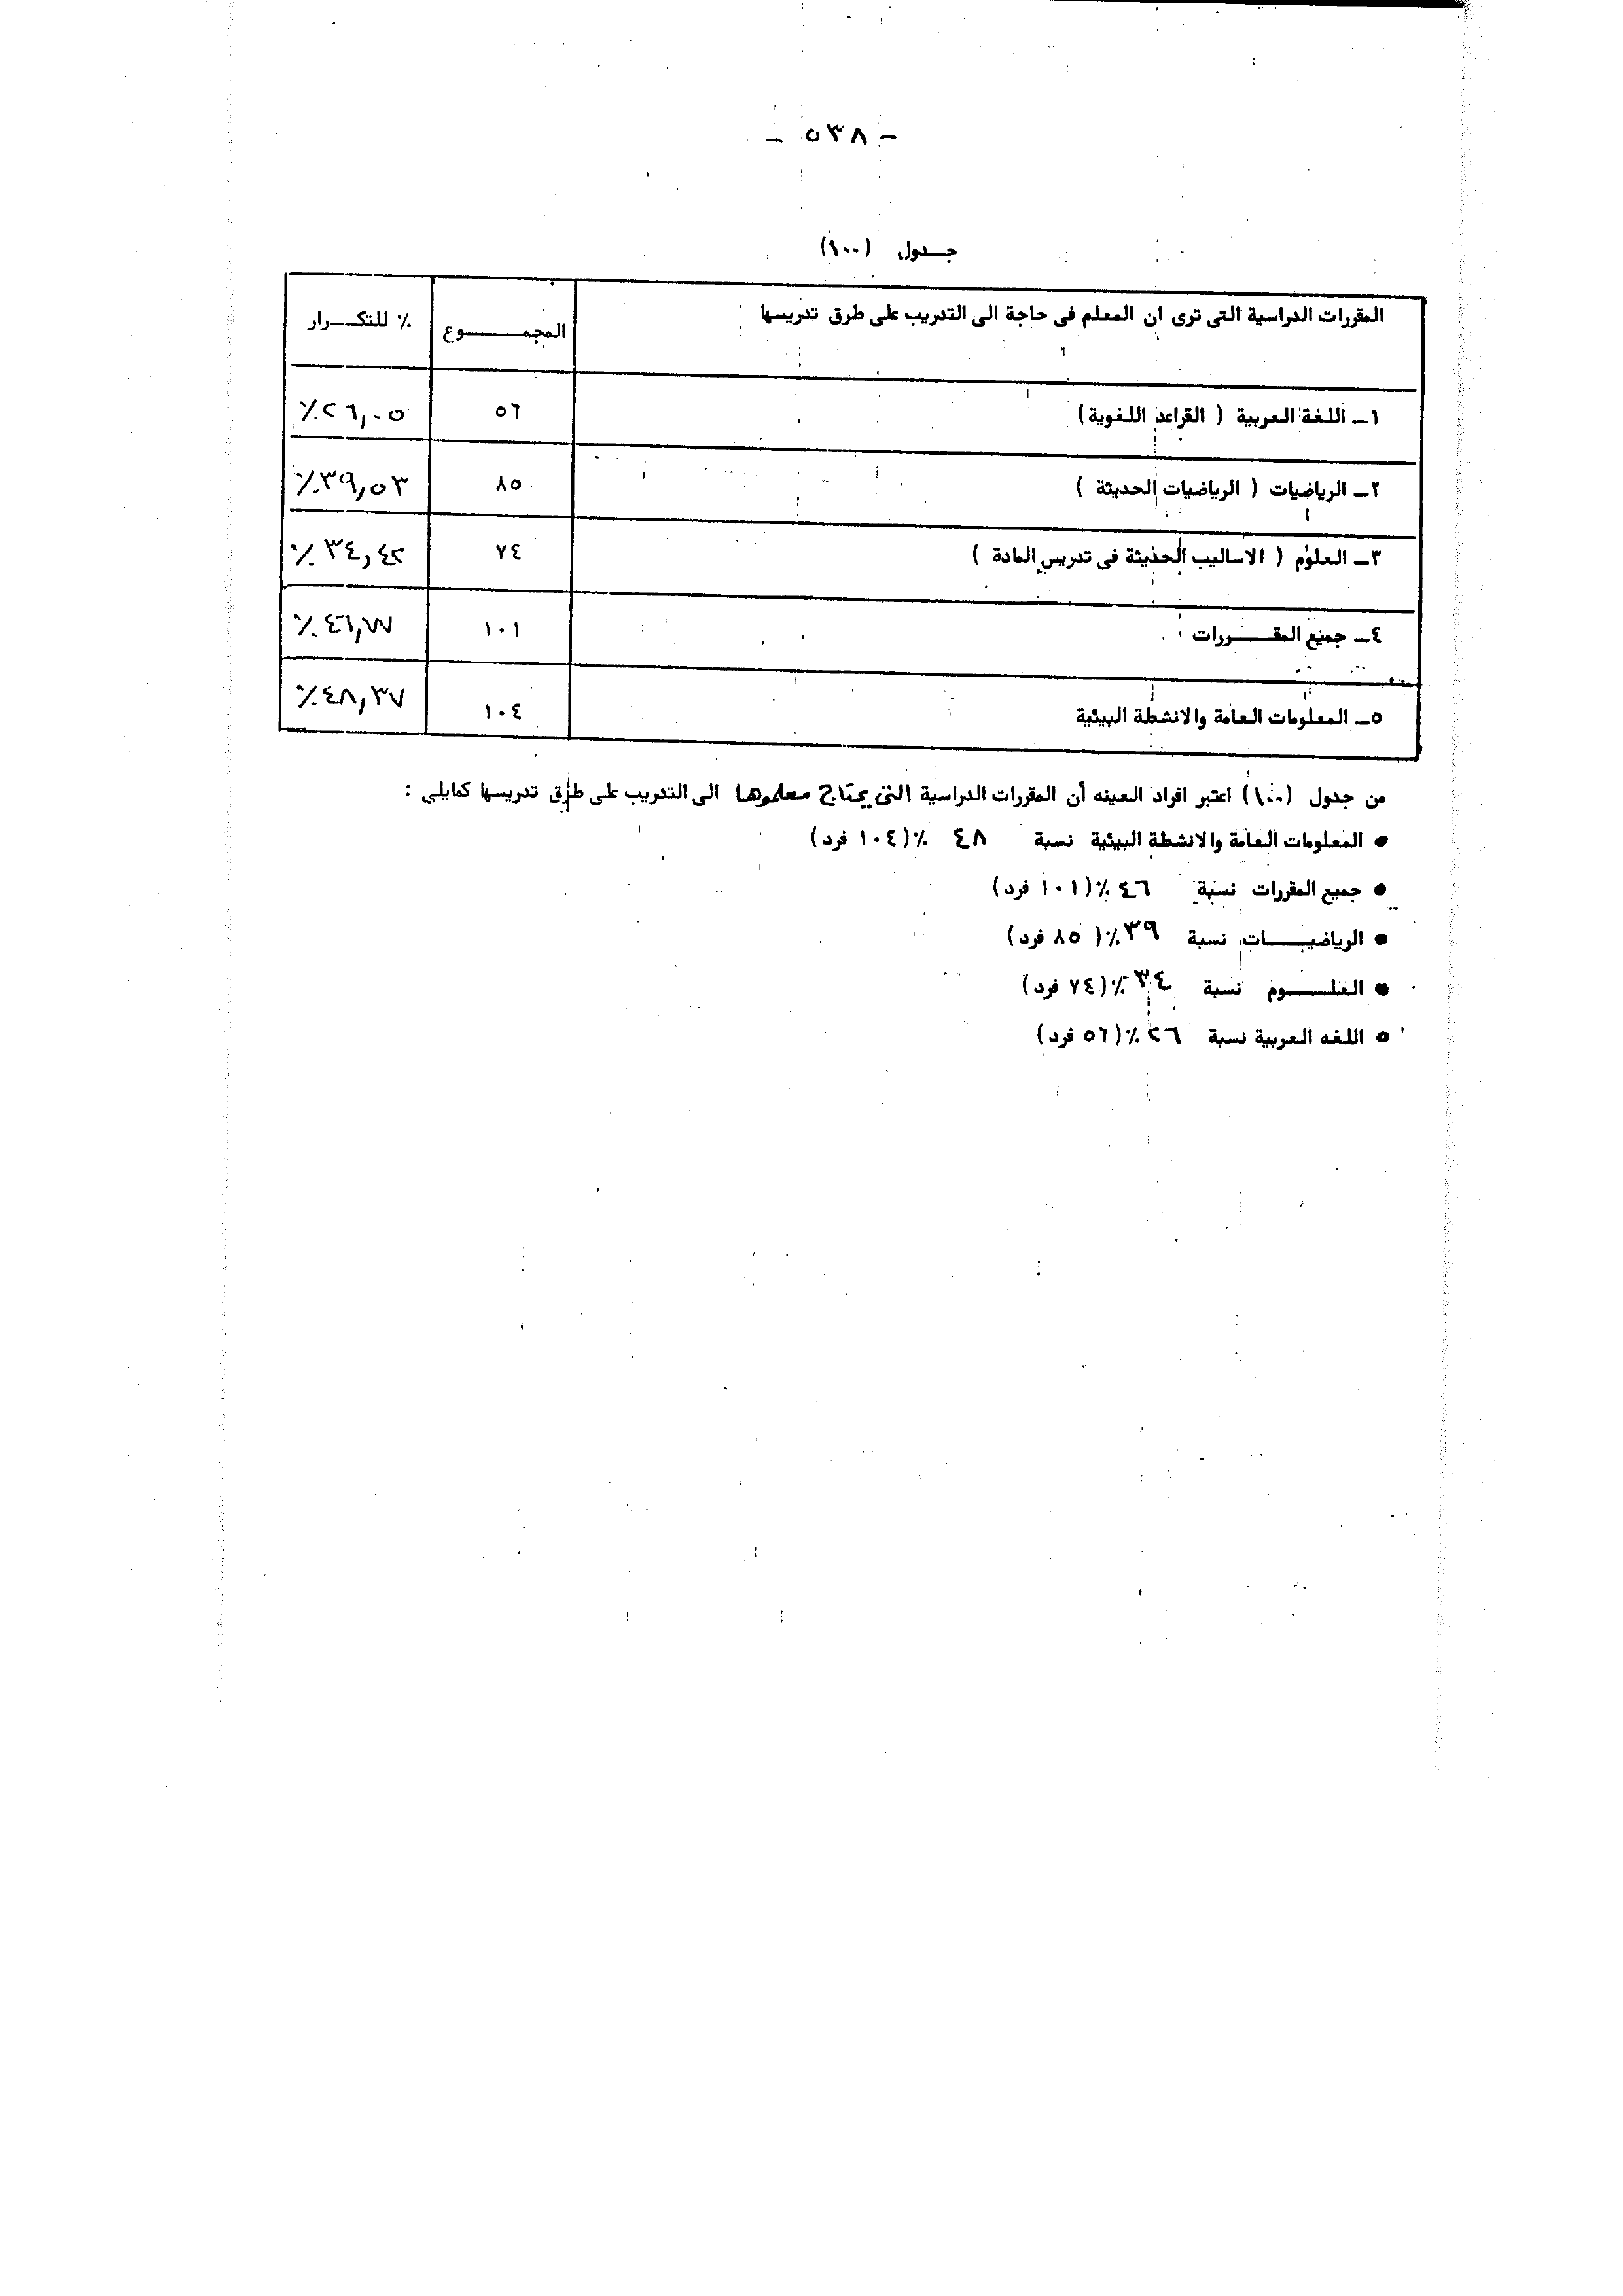 - ٥٣٨ -
جــدول (١٠٠)
المقررات الدراسية التى ترى ان المعلم فى حاجة الى التدريب على طرق تدريسها المجمــــــوع ٪ للتكــرار
١ـ اللغة العربية ( القراعد اللغوية ) ٥٦ ٢٦,٠٥٪
٢ـ الرياضيات ( الرياضيات الحديثة ) ٨٥ ٣٩,٥٣٪
٣ـ العلوم ( الاساليب الحديثة فى تدريس المادة ) ٧٤ ٣٤,٤٢٪
٤ـ جميع المقـــــررات ١٠١ ٤٦,٧٧٪
٥ـ المعلومات العامة والانشطة البيئية ١٠٤ ٤٨,٣٧٪
من جدول (١٠٠) اعتبر افراد العينه أن المقررات الدراسية التى يحتاج معلموها الى التدريب على طرق تدريسها كمايلى :
● المعلومات العامة والانشطة البيئية نسبة ٤٨ ٪(١٠٤ فرد)
● جميع المقررات نسبة ٤٦ ٪(١٠١ فرد)
● الرياضيــــات نسبة ٣٩٪( ٨٥ فرد)
● العلـــــوم نسبة ٣٤٪(٧٤ فرد)
٥ اللغه العربية نسبة ٢٦٪(٥٦ فرد)